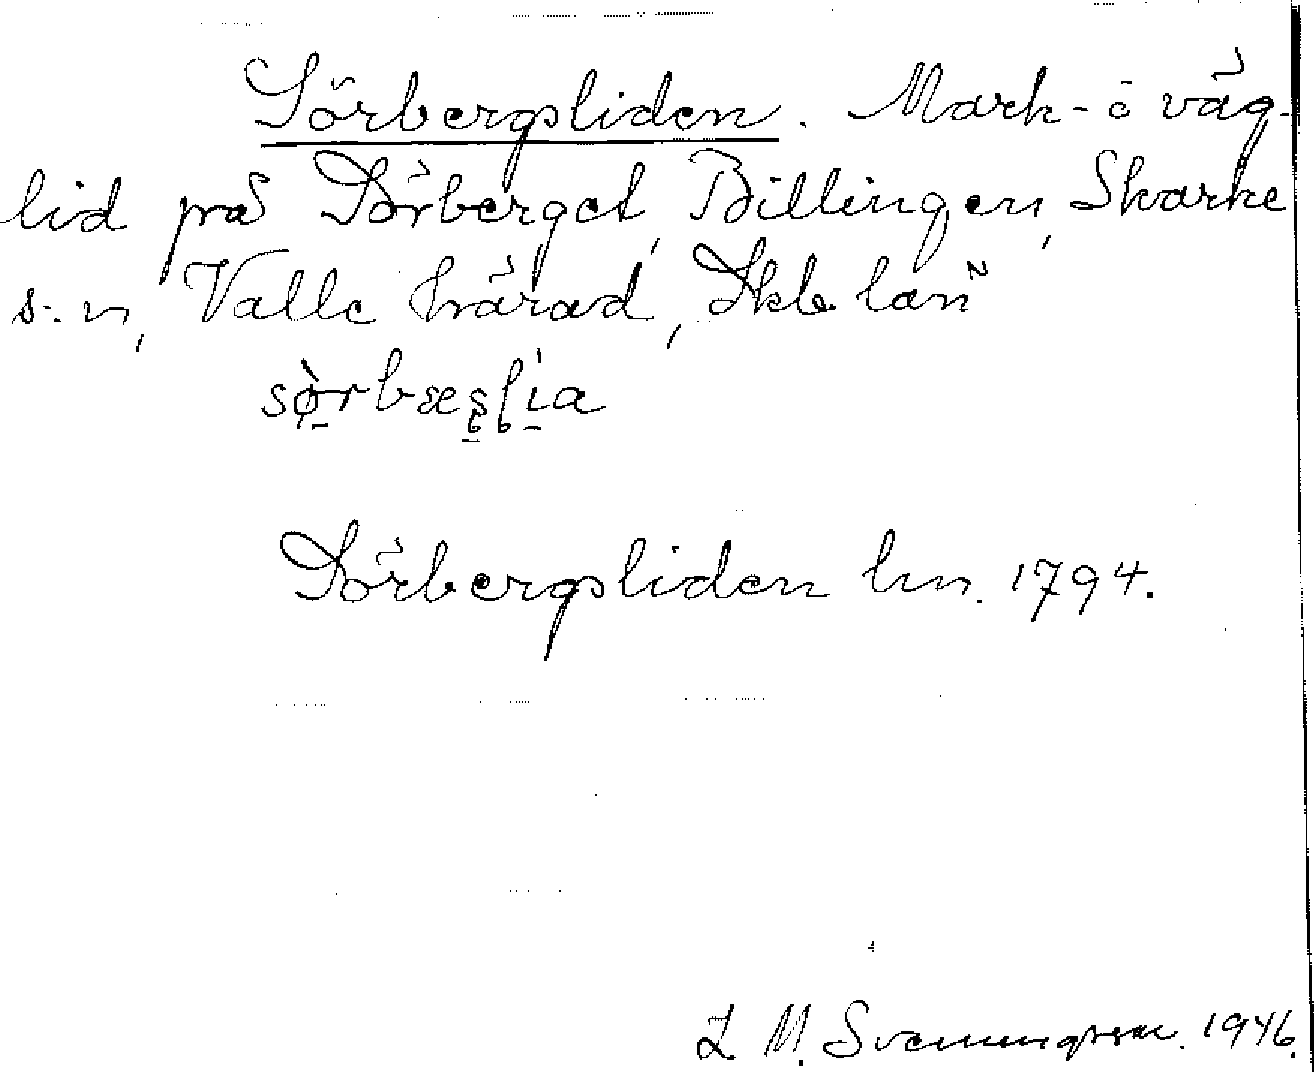 Sörbergsliden. Mark- o väg-
lid på Sörberget, Billingen, Skarke
s:n, Valle härad, Skb län
sø̀rbæʂlìa
Sörbergsliden lm. 1794.
L M. Svenungsson. 1946.